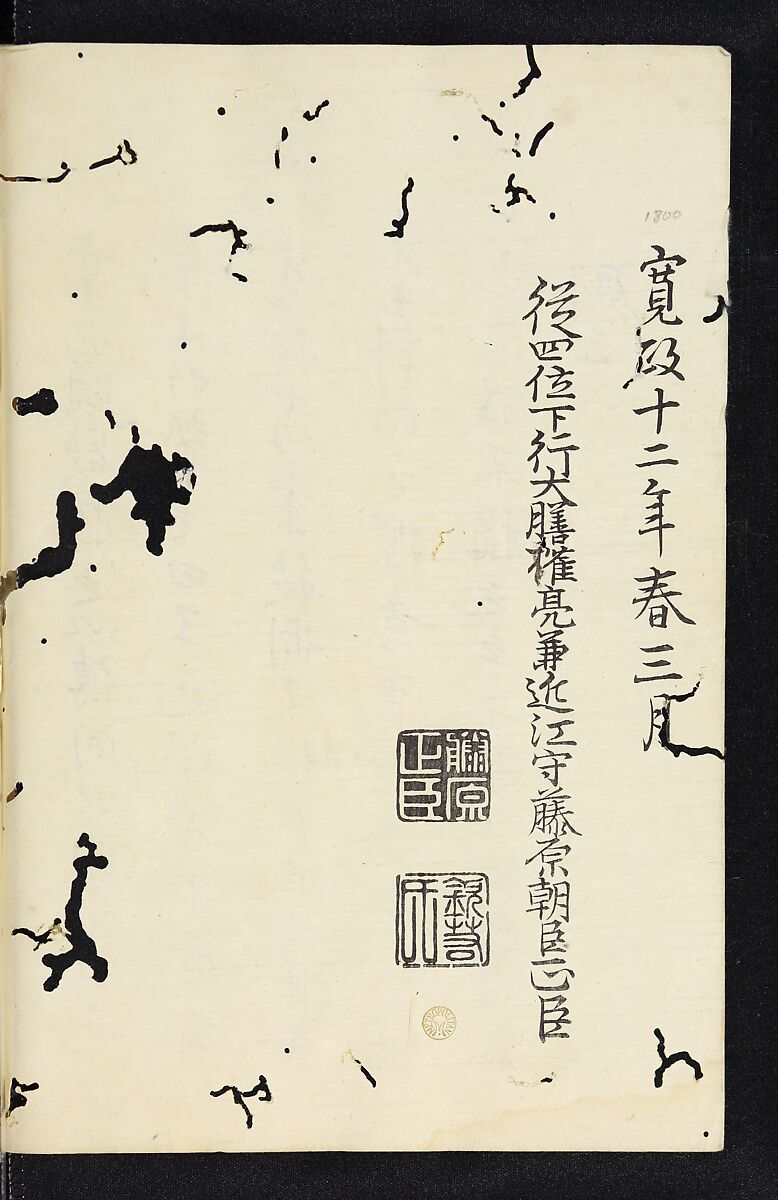 1800
寛政十二年春三月
従四位下行大膳權亮兼近江守藤原朝臣正臣
藤原
正臣
METROPOLITAN